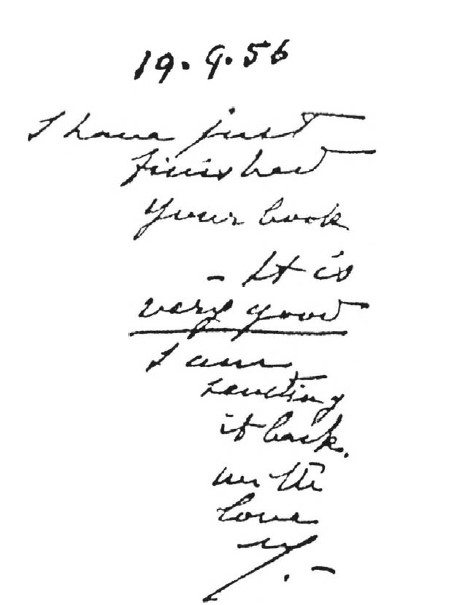 19.9.56
I have just
finished
your book
- It is
very good
I am
sending
it back.
with
love